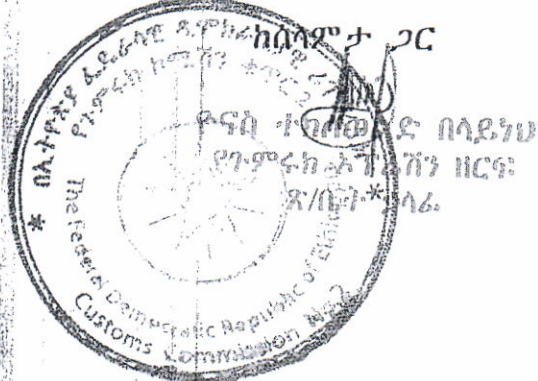 ከሰላምታ ጋር
ዮናስ በላይነህ
የጉምሩክ ኦፕሬሽን ዘርፍ
ጽ/ቤት ኃላፊ
* በኢትዮጵያ ፌዴራላዊ ዲሞክራሲያዊ
የጉምሩክ ኮሚሽን ቁጥር 2
The Federal Democratic Republic of Ethiopia
Customs Commission No 2
*